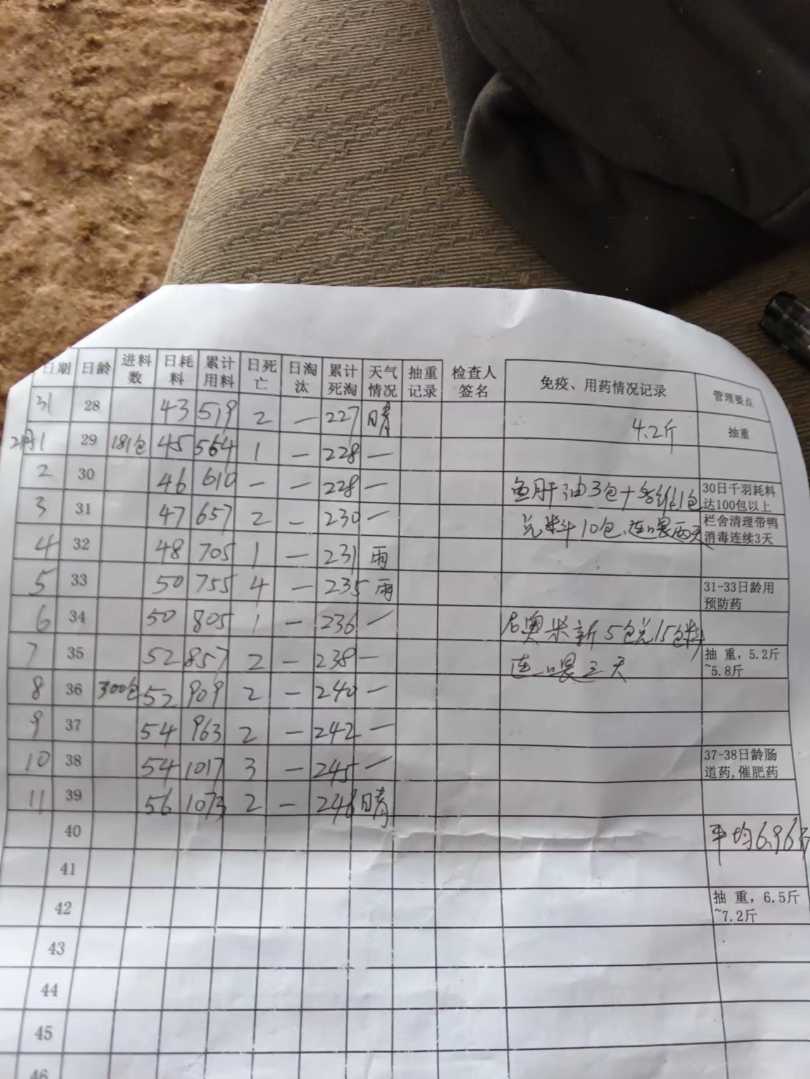 日期 日龄 进料数 日耗料 累计用料 日死亡 日淘汰 累计死淘 天气情况 抽重记录 检查人签名 免疫、用药情况记录 管理要点
31 28 43 519 2 — 227 晴 4.2斤 抽重
2月1 29 181包 45 564 1 — 228 —
2 30 46 610 — — 228 — 鱼肝油3包+多维1包 30日千羽耗料达100包以上
3 31 47 657 2 — 230 — 兑料10包,连喂两天 栏舍清理带鸭消毒连续3天
4 32 48 705 1 — 231 雨
5 33 50 755 4 — 235 雨 31-33日龄用预防药
6 34 50 805 1 — 236 — 奥米新5包兑15包料
7 35 52 857 2 — 238 — 连喂三天 抽 重,5.2斤~5.8斤
8 36 300包 52 909 2 — 240 —
9 37 54 963 2 — 242 —
10 38 54 1017 3 — 245 — 37-38日龄肠道药,催肥药
11 39 56 1073 2 — 246 晴
40 平均6.96斤
41
42 抽 重,6.5斤~7.2斤
43
44
45
46